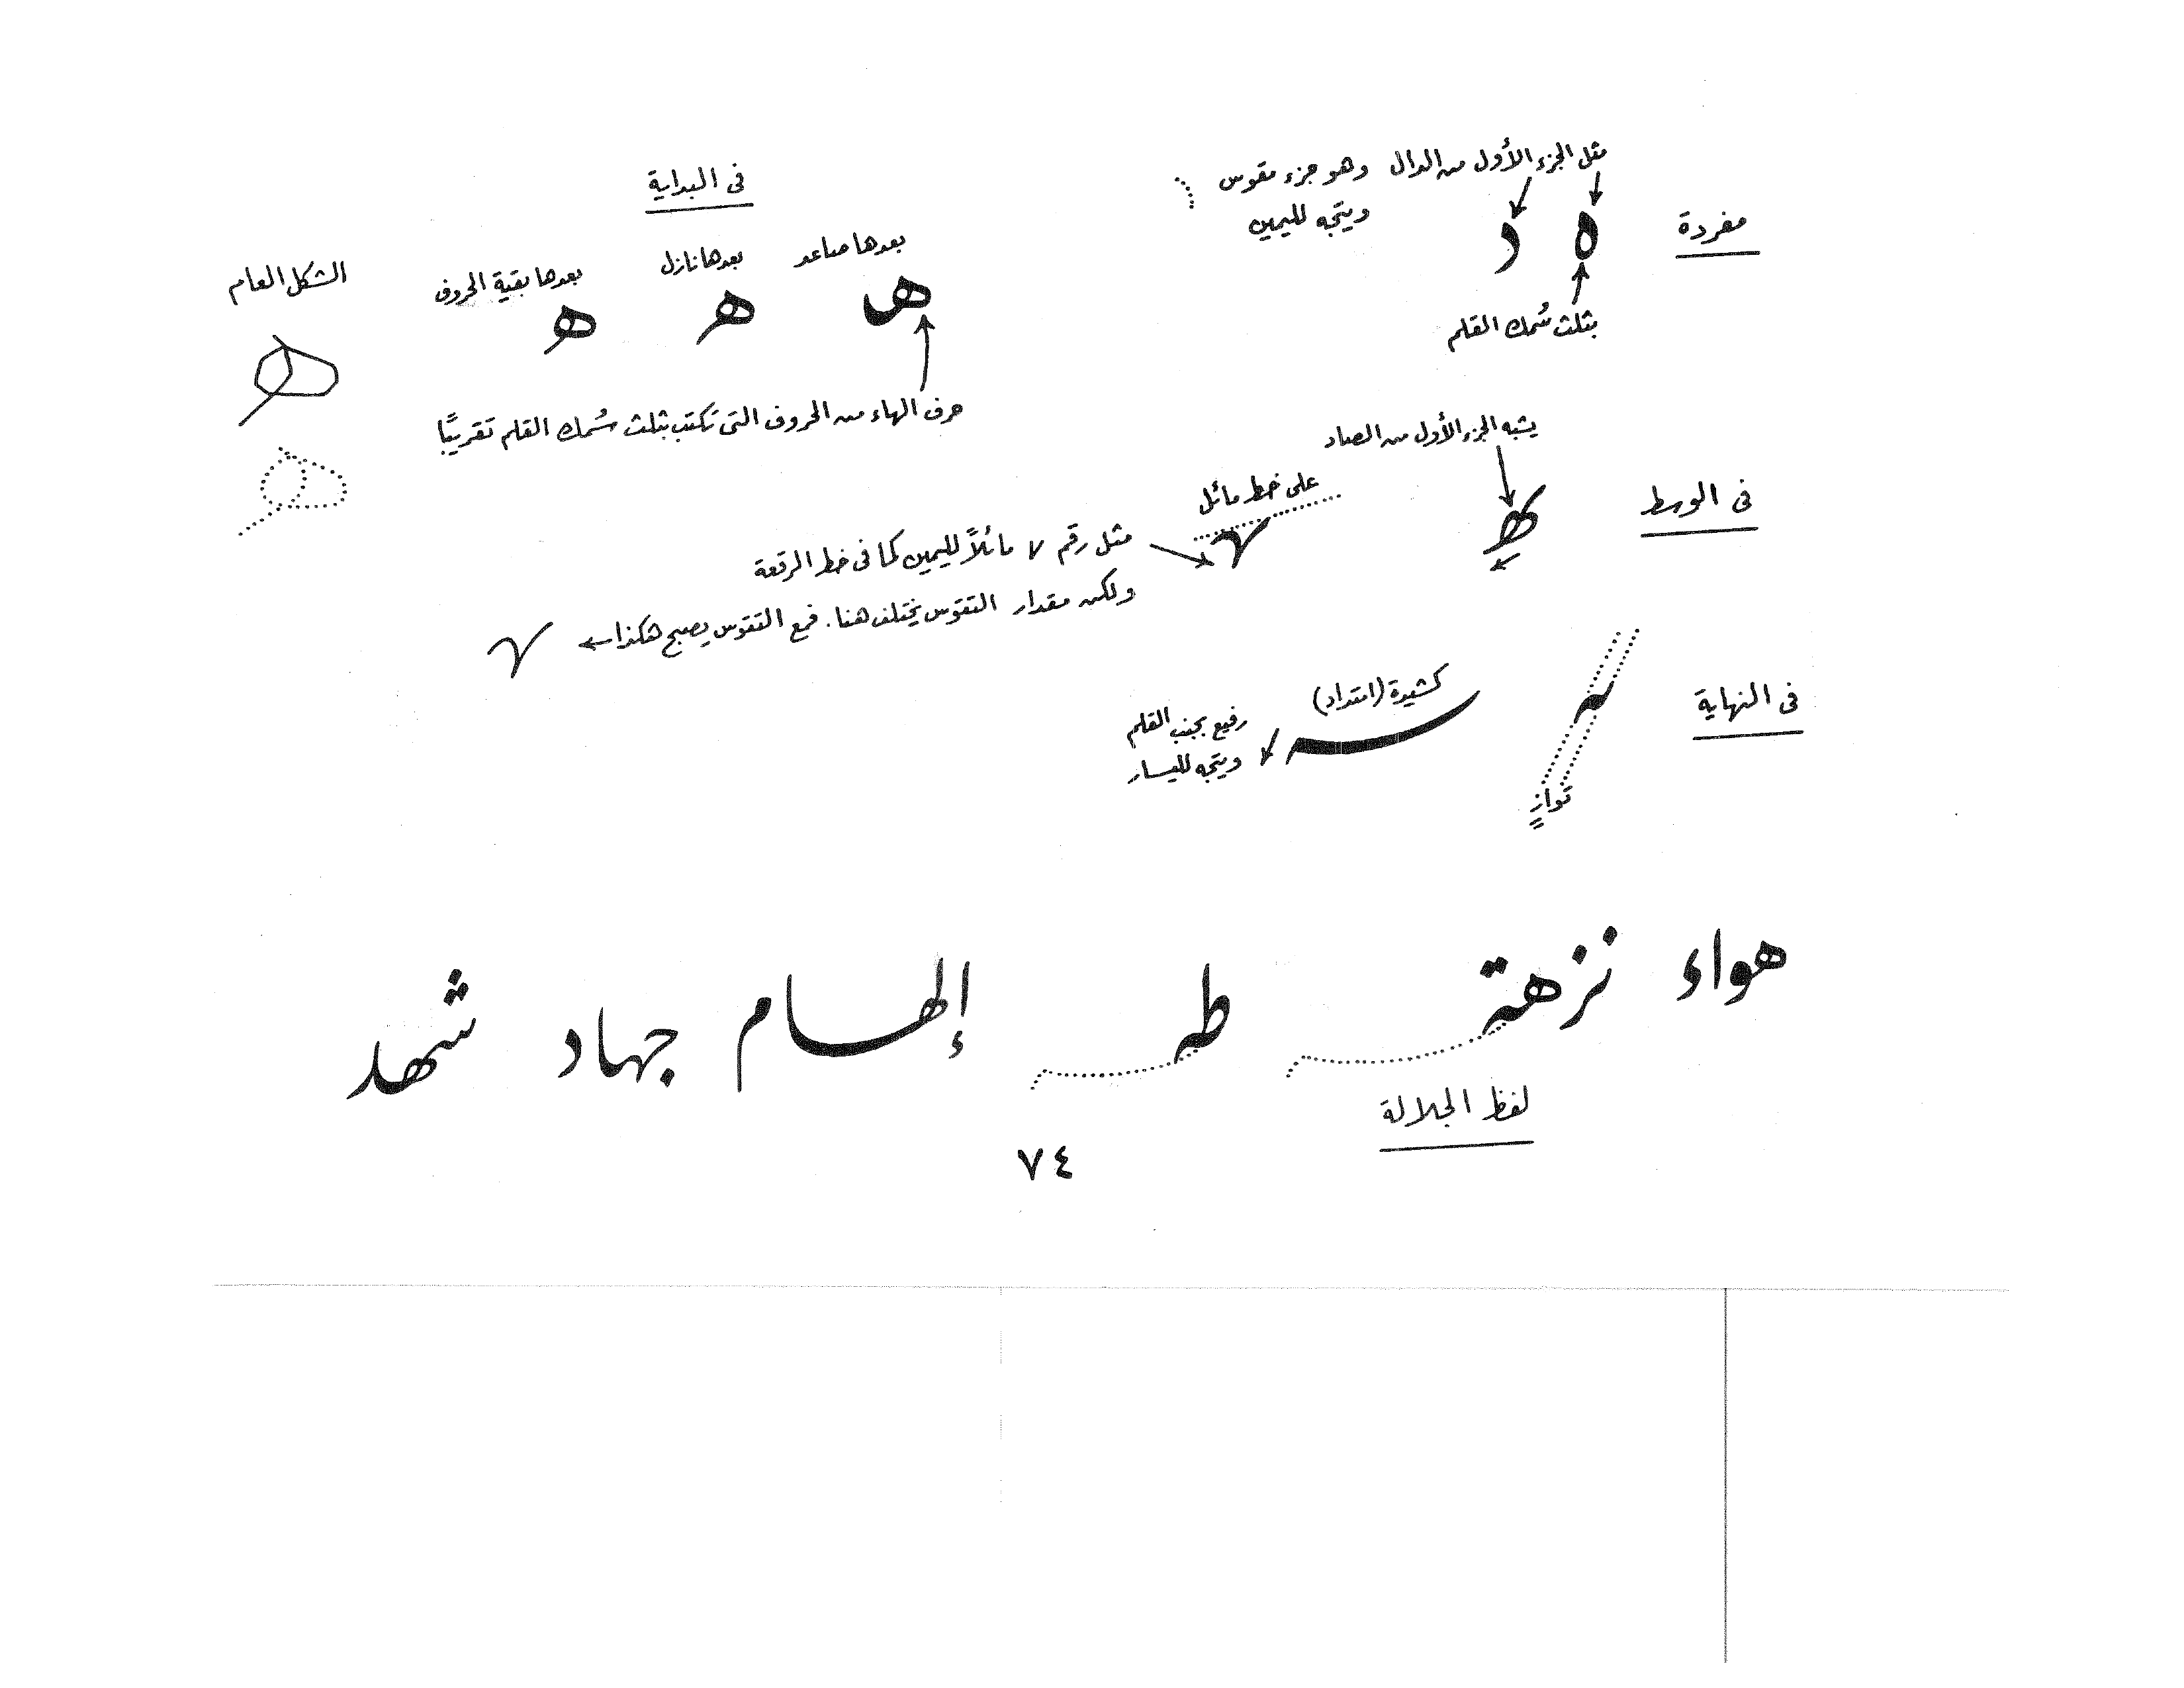 مفردة
مثل الجزء الأول من الدال وهو جزء مقوس
ويتجه لليمين
ه د
بثلث سُمك القلم
فى البداية
بعدها صاعد
بعدها نازل
بعدها بقية الحروف
الشكل العام
هـ هـ هـ
حرف الهاء من الحروف التى تكتب بثلث سُمك القلم تقريبًا
فى الوسط
يشبه الجزء الأول من الصاد
ـهـ
على خط مائل
مثل رقم ٧ مائلاً لليمين كما فى خط الرقعة
ولكن مقدار التقوس يختلف هنا. فمع التقوس يصبح هكذا
فى النهاية
ـه
توازٍ
كشيدة (امتداد)
رفيع بجنب القلم
ويتجه لليسار
هواء نزهة طه إلهام جهاد شهد
لفظ الجلالة
٧٤